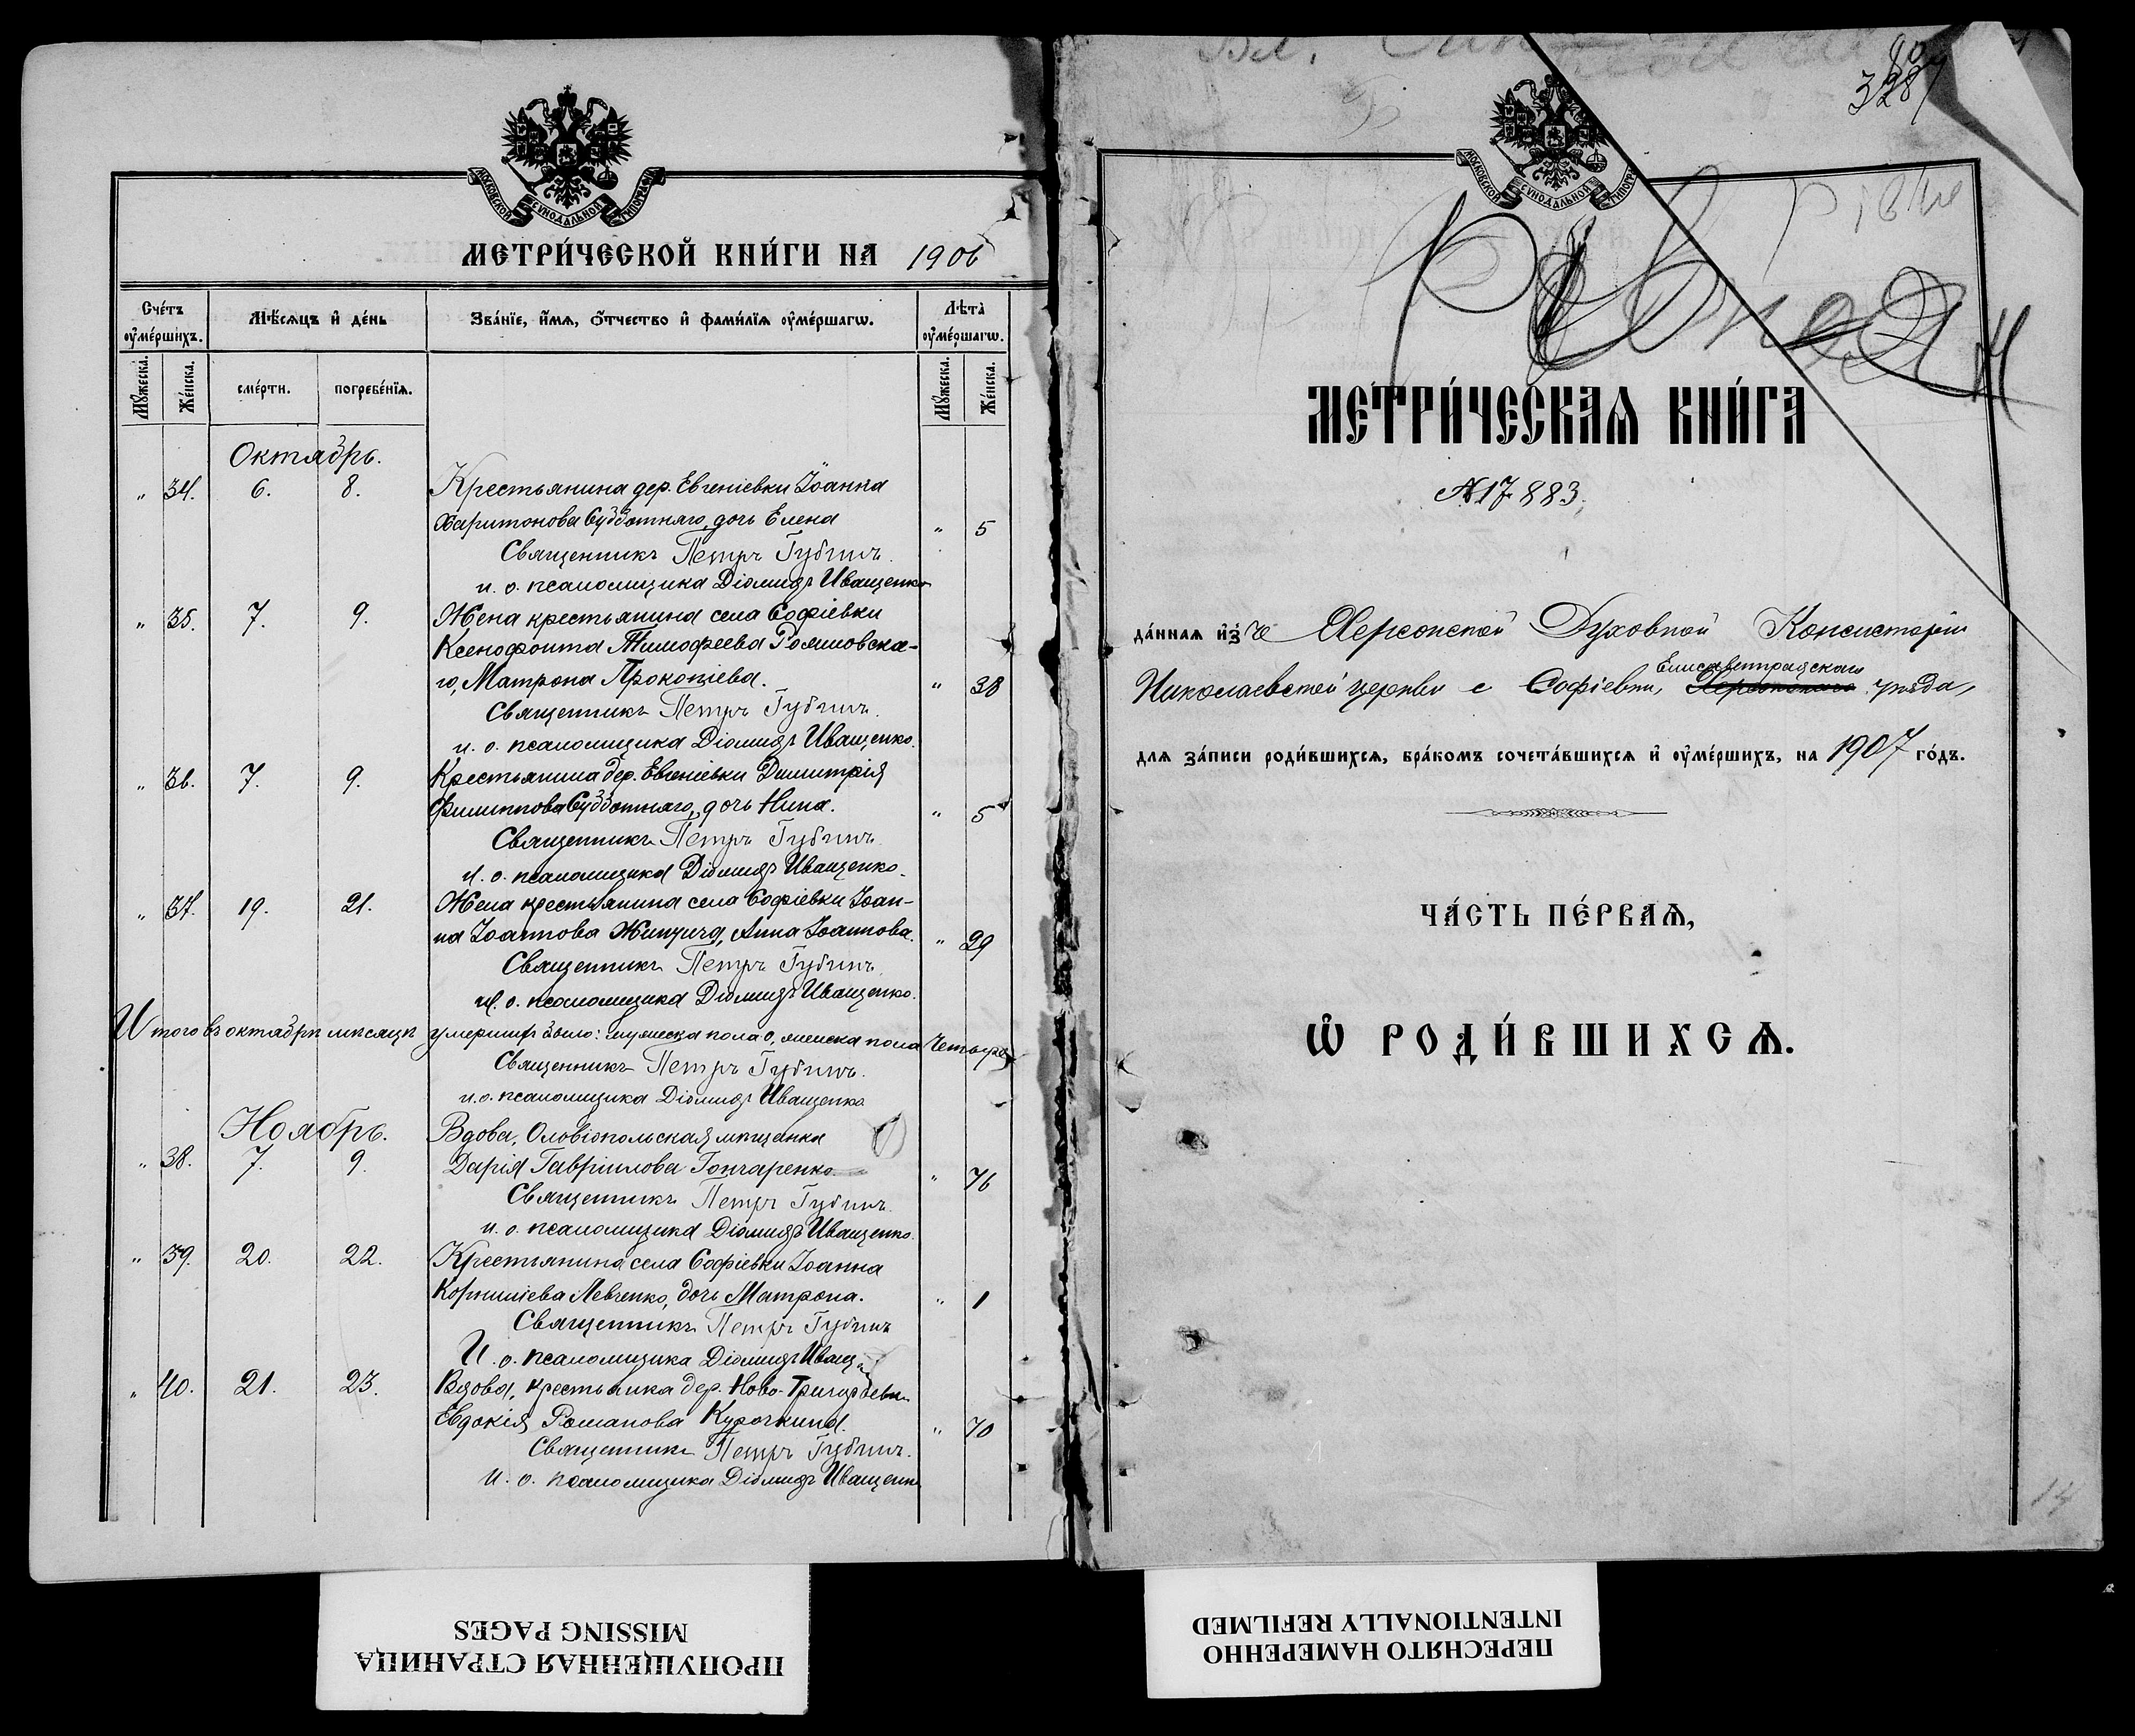 МОСКОВСКОЙ СѴНОДАЛЬНОЙ ТИПОГРАФІИ
МЕТРИ́ЧЕСКОЙ КНИ́ГИ НА 1906
Сче́тъ оу҆ме́ршихъ.
Мѣ́сѧцъ и҆ де́нь
Зва́нїе, и҆́мѧ, ѻ҆́тчество и҆ фами́лїѧ оу҆ме́ршагѡ.
Лѣ́та оу҆ме́ршагѡ.
Мꙋ́жеска.
Же́нска.
сме́рти.
погребе́нїѧ.
Мꙋ́жеска.
Же́нска.
Октябрь.
" 34. 6. 8. Крестьянина дер. Евгеніевки Іоанна
Харитонова Субботняго, дочь Елена " 5
Священникъ Петръ Губинъ.
и. о. псаломщика Діомидъ Иващенко
" 35. 7. 9. Жена крестьянина села Софіевки
Ксенофонта Тимофеева
го, Матрона Прокопіева. " 38
Священникъ Петръ Губинъ.
и. о. псаломщика Діомидъ Иващенко.
" 36. 7. 9. Крестьянина дер. Евгеніевки Димитрія
Филиппова Субботняго, дочь Нина. " 5
Священникъ Петръ Губинъ.
и. о. псаломщика Діомидъ Иващенко.
" 37. 19. 21. Жена крестьянина села Софіевки Іоан-
на Іоаннова Анна Іоаннова. " 29
Священникъ Петръ Губинъ.
и. о. псаломщика Діомидъ Иващенко.
Итого въ октябрѣ мѣсяцѣ умершихъ было: мужеска пола 0, женска пола четыре
Священникъ Петръ Губинъ.
и. о. псаломщика Діомидъ Иващенко
Ноябрь.
Вдова, Оловіопольская мѣщанка
" 38. 7. 9. Дарія Гавріилова Гончаренко. " 76
Священникъ Петръ Губинъ.
и. о. псаломщика Діомидъ Иващенко.
" 39. 20. 22. Крестьянина села Софіевки Іоанна
Корниліева Левченко, дочь Матрона. " 1
Священникъ Петръ Губинъ
И. о. псаломщика Діомидъ Иващ
" 40. 21. 23. Вдова, крестьянка дер. Ново-
Евдокія Романова Курочкина. " 70
Священникъ Петръ Губинъ.
и. о. псаломщика Діомидъ Иващенко
ПРОПУЩЕННАЯ СТРАНИЦА
MISSING PAGES
328
МОСКОВСКОЙ СѴНОДАЛЬНОЙ ТИПОГР
МЕТРИ́ЧЕСКАѦ КНИ́ГА
№ 17883.
да́ннаѧ и҆з̾ Херсонской Духовной Консисторіи
Елисаветградскаго
Николаевской церкви с Софіевки, Херсонскаго уѣзда,
длѧ за́писи роди́вшихсѧ, бра́комъ сочета́вшихсѧ и҆ оу҆ме́ршихъ, на 1907 го́дъ.
ЧА́СТЬ ПЕ́РВАѦ,
Ѡ҆ РОДИ́ВШИХСѦ.
14
ПЕРЕСНЯТО НАМЕРЕННО
INTENTIONALLY REFILMED